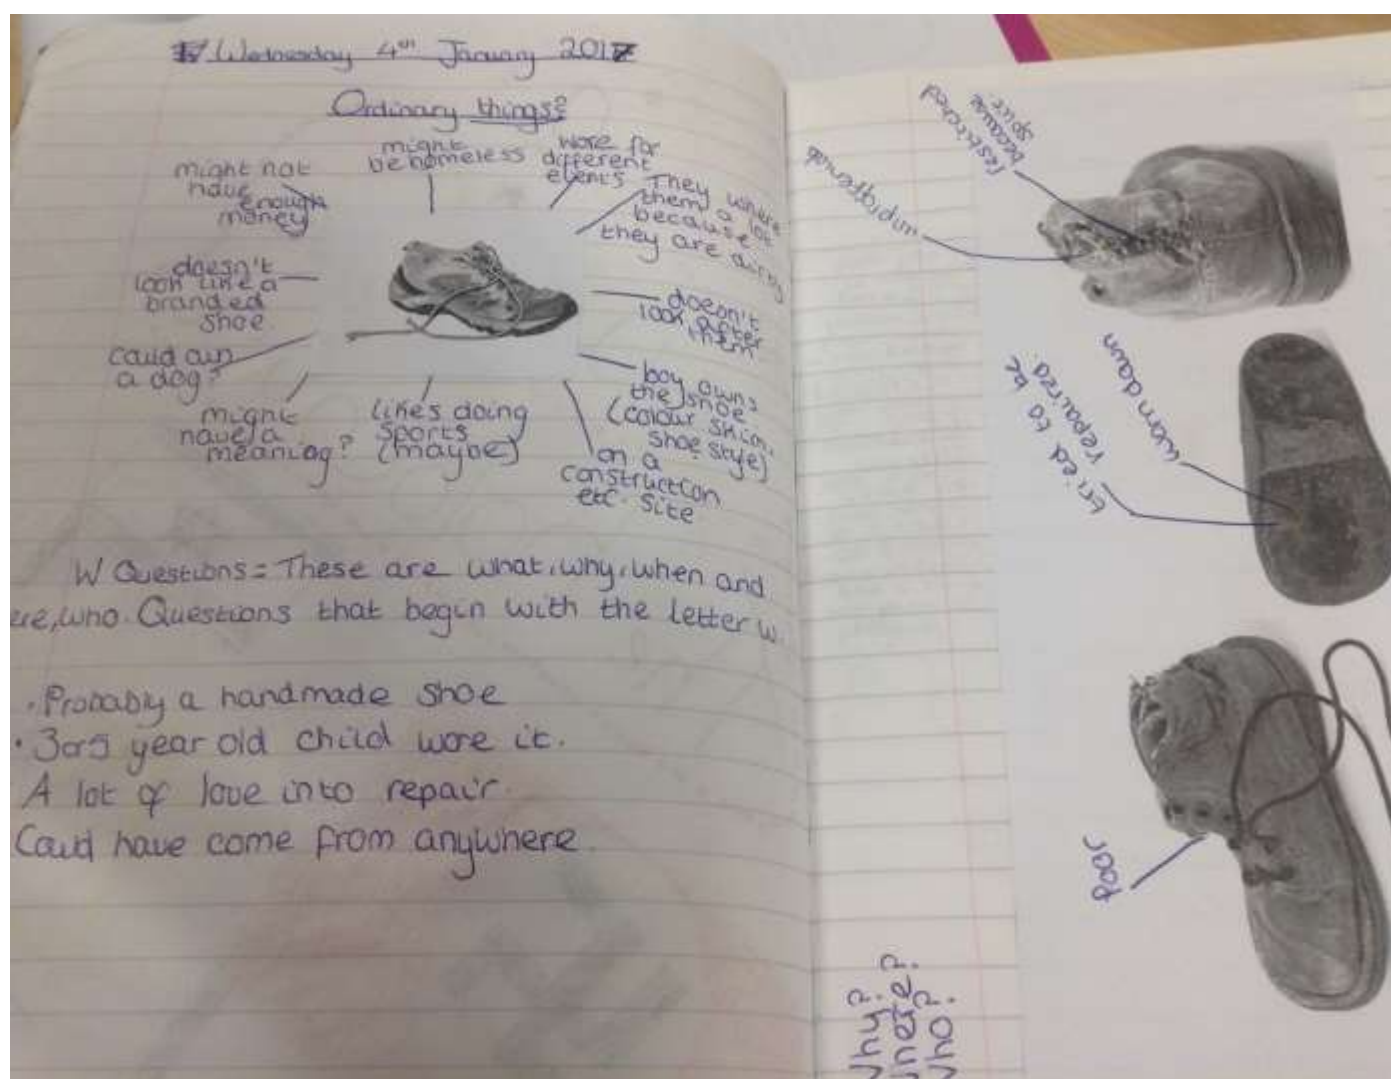 Wednesday 4th January 2017
Ordinary things?
might not
have
enough
money
might
be homeless
wore for
different
events
They where
them a lot
because
they are dirty
doesn't
look like a
branded
shoe
doesn't
look after
them
could own
a dog?
boy owns
the shoe
(colour skin,
shoe style)
might
have a
meaning?
likes doing
sports
(maybe)
on a
construction
etc. site
W Questions = These are what, why, when and
ere, who. Questions that begin with the letter w.
· Probably a handmade shoe
· 3or5 year old child wore it.
A lot of love into repair.
Could have come from anywhere.
restitched
because
split.
worn down
tried to be
repaired.
Poor
why?
where?
who?